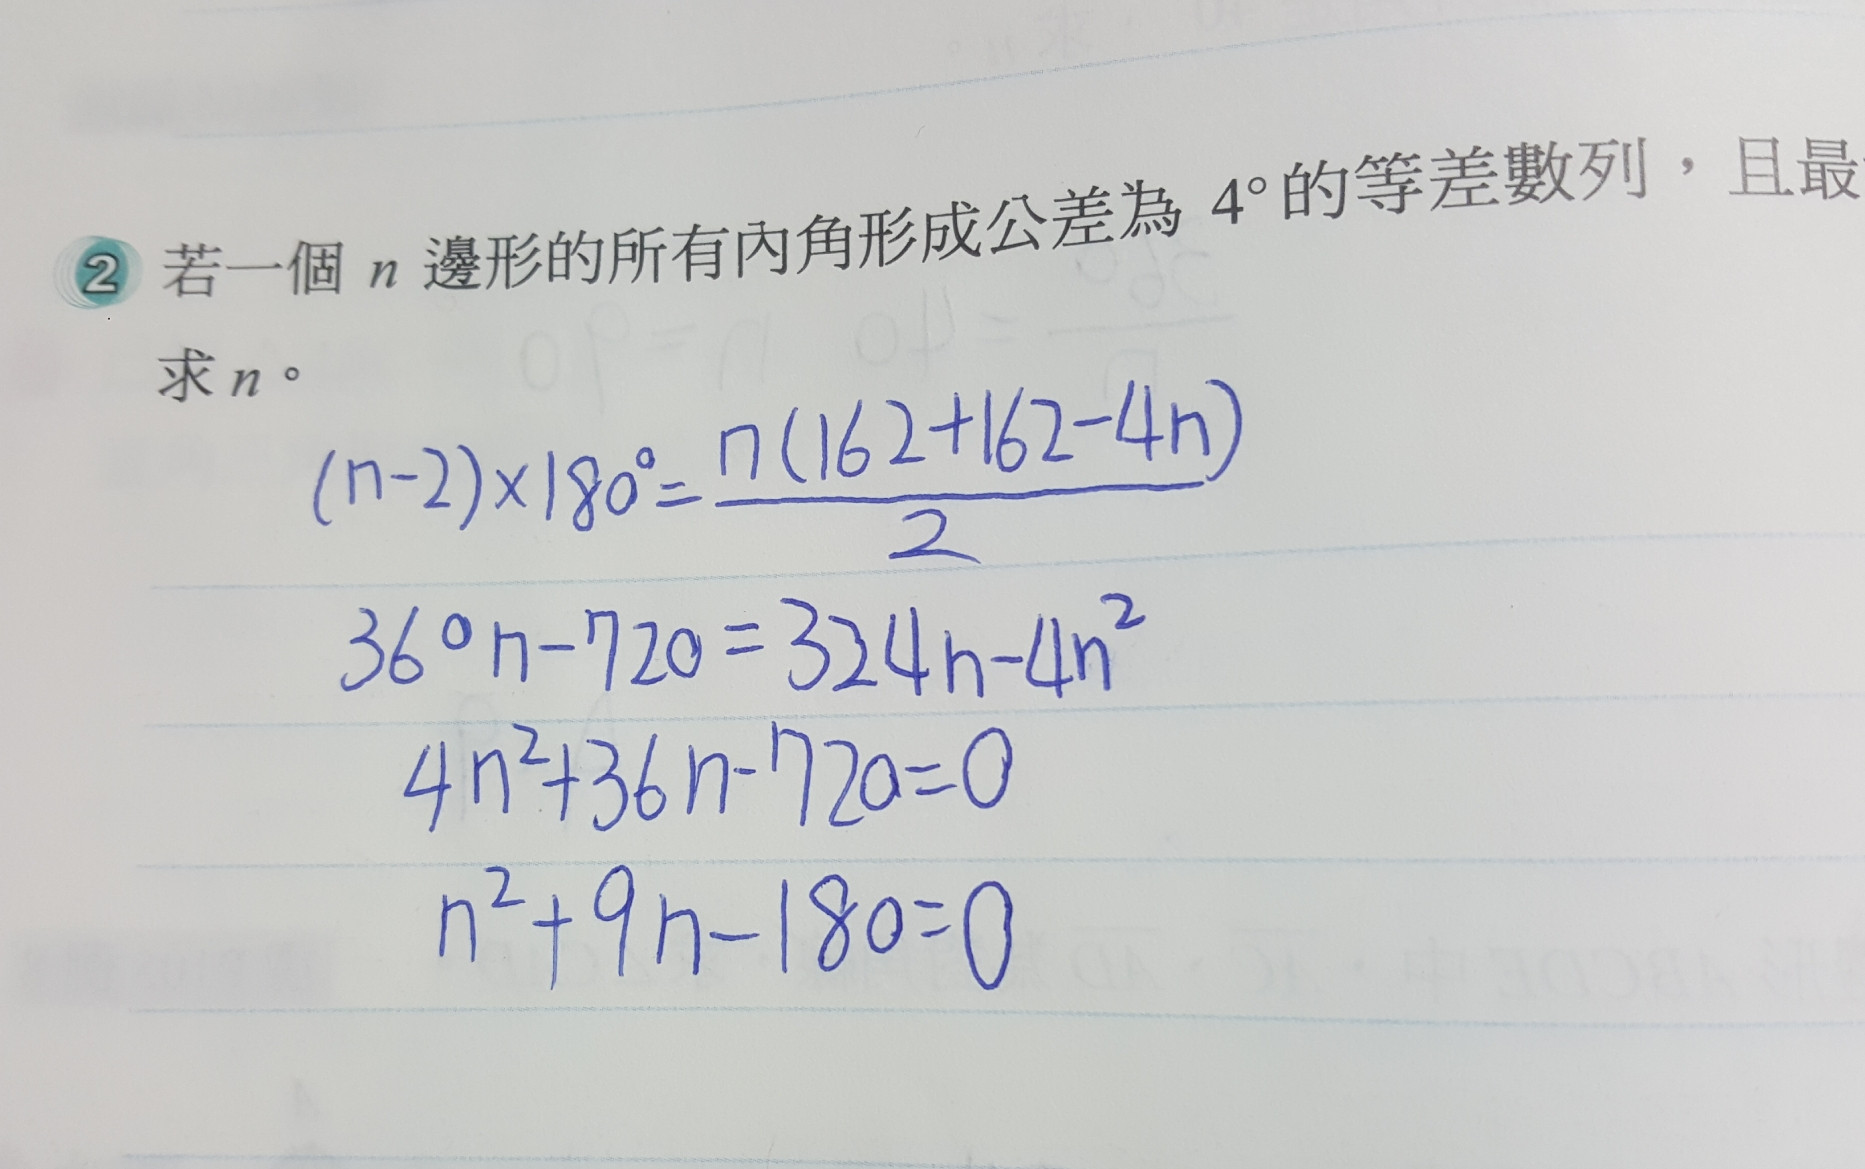 ② 若一個 n 邊形的所有內角形成公差為 4° 的等差數列，且最
求 n。
(n-2)×180°=\frac{n(162+162-4n)}{2}
360n-720=324n-4n²
4n²+36n-720=0
n²+9n-180=0